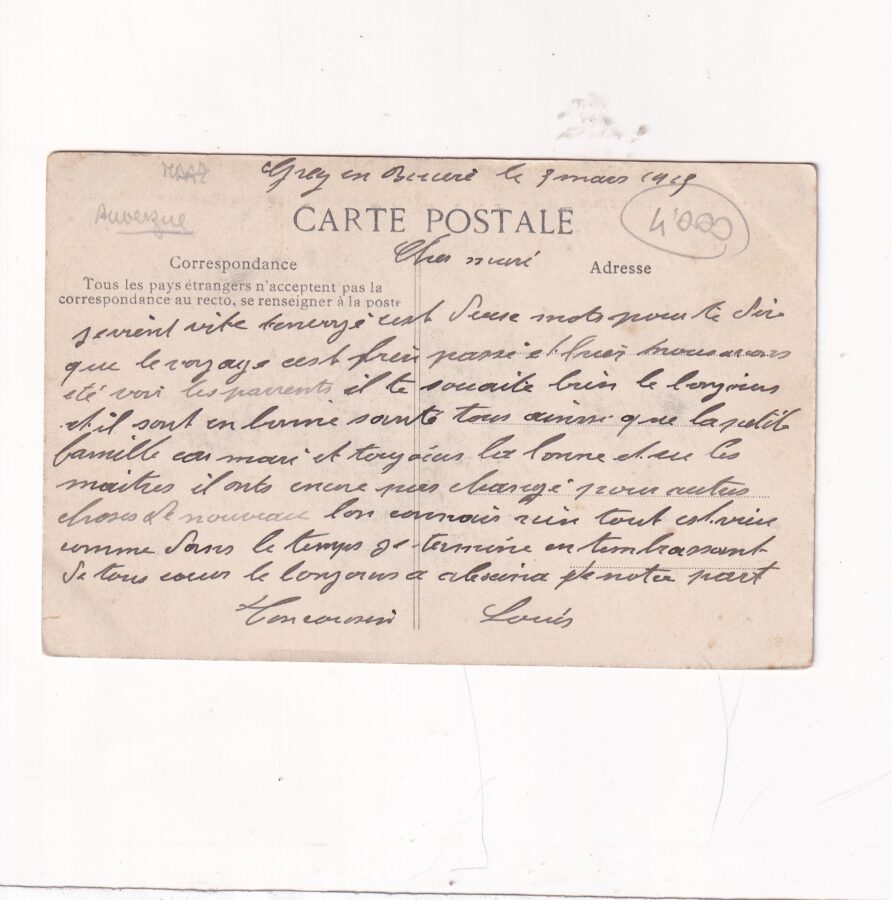 Auvergne
le 7 mars 1919
CARTE POSTALE
Correspondance
Adresse
Tous les pays étrangers n'acceptent pas la
correspondance au recto, se renseigner à la poste
Cher
je vient vite mots pour te dire
que le voyage cest passé et
été voir les parrents il te souaite bien le bonjour
et il sont en bonne santé tous ainsi que la petite
famille car et toujours la bonne et les
maitres il onts encore pas changé pour autres
choses de nouveau lon connais rien tout est
comme dans le temps je termine en tembrassant
de tous coeur le bonjours a de notre part
Ton cousin Louis